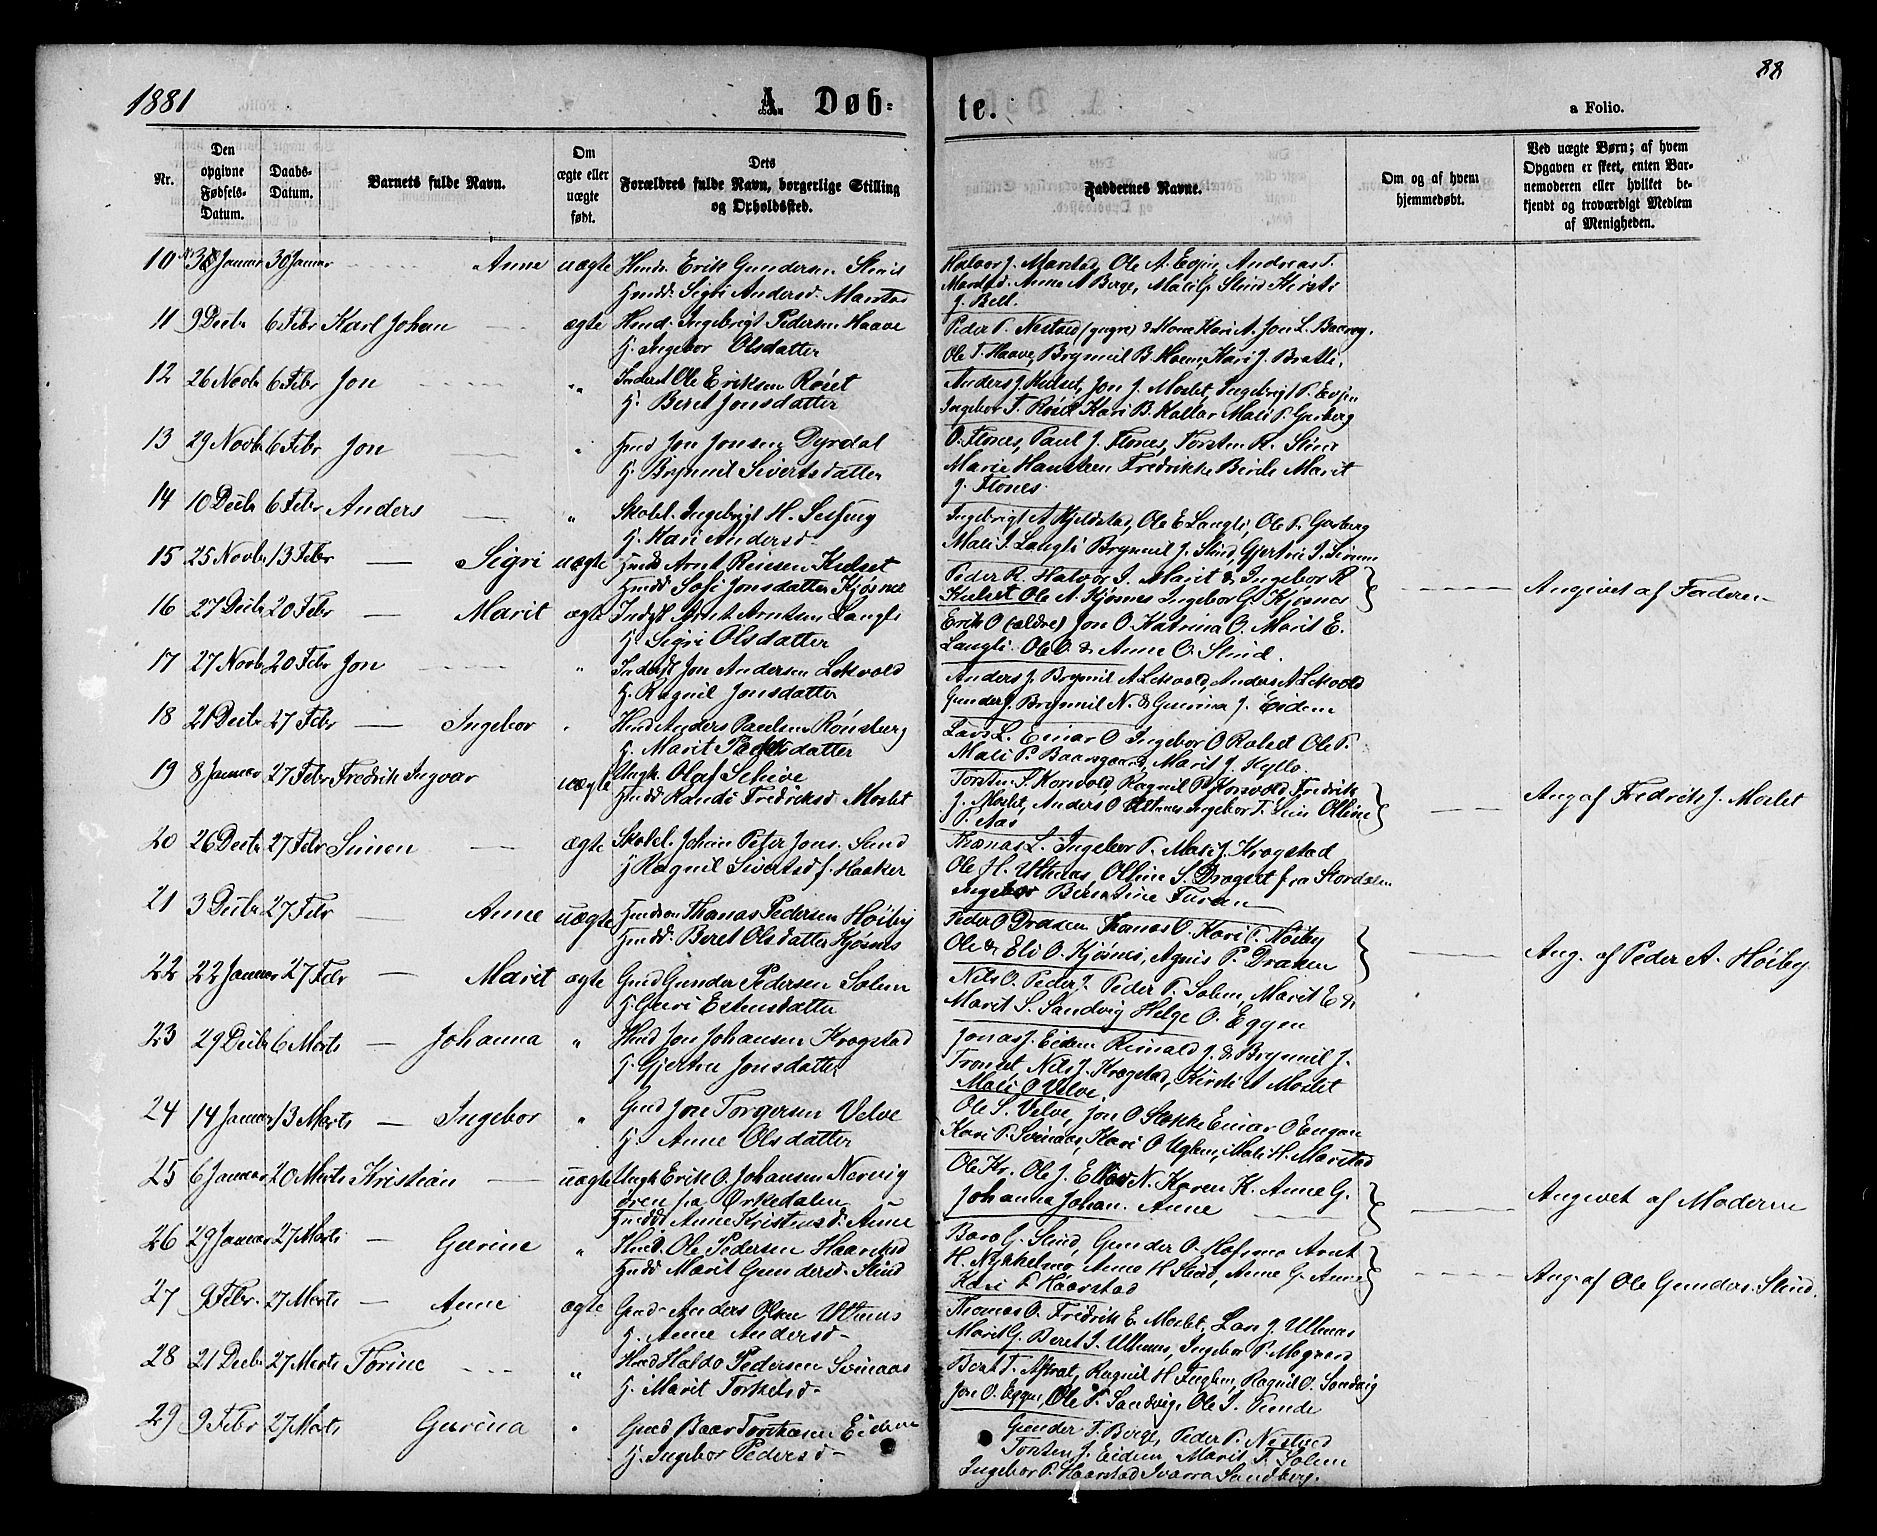 1881
A. Døb-
te.
88
a Folio.
Nr.
Den opgivne Fødsels-Datum.
Daabs-Datum.
Barnets fulde Navn.
Om ægte eller uægte født.
Dets Forældres fulde Navn, borgerlige Stilling og Opholdssted.
Faddernes Navne.
Om og af hvem hjemmedøbt.
Ved uægte Børn; af hvem Opgaven er skeet, enten Barnemoderen eller hvilket bekjendt og troværdigt Medlem af Menigheden.
10 Januar 30 Januar Anne uægte Hmds. Erik Gundersen Slind
Hmdd. Sigri Andersd. Marstad
Halvor J. Marstad, Ole A. Evjen, Andreas T.
Marstad. Anne A Berge, Mali G. Slind Kirsti
J. Bell.
11 9 Decbr 6 Febr Karl Johan ægte Hmd. Ingebrigt Pedersen Haave
H. Ingebor Olsdatter
Peder P. Nestad (yngre) & Kone Kari A. Jon L.
Ole T. Haave, Brynnil B. Moem, Kari J. Bratli.
12 26 Novbr 6 Febr Jon " Inderst Ole Eriksen Røset
H. Beret Jonsdatter
Anders J. Kulset, Jon J. Moslet, Ingebrigt P. Evjen
Ingebor T. Røset Kari B. Kallar Mali P. Garberg
13 29 Novbr 6 Febr Jon " Hmd Jon Jonsen Dyrdal
H. Brynnil Sivertsdatter
O. Flønes, Paul J. Flønes, Torsten R. Slind
Marie Hansteen Fredrikke Birch Marit
J. Flønes.
14 10 Decbr 6 Febr Anders " Skolel. Ingebrigt H. Sesseng
H. Kari Andersd.
Ingebrigt A Kjeldstad, Ole E Langli, Ole P. Garberg
Mali I. Langli Brynnil J. Slind, Gjertru I.
15 25 Novbr 13 Febr Sigri uægte Hmds Arnt Reiersen Kulset
Hmdd Sofi Jonsdatter Kjøsnes
Peder R. Halvor I. Marit & Ingebor R
Kulset Ole A. Kjøsnes Ingebor G. Kjøsnes
Angivet af Faderen
16 27 Decbr 20 Febr Marit ægte Indst Arnt Arntsen Langli
H. Sigri Olsdatter
Erik O (ældre) Jon O. Katrina O. Marit E.
Langli. Ole O. & Anne O. Slind.
17 27 Novbr 20 Febr Jon " Indst Jon Andersen Lekvold
H. Ragnil Jonsdatter
Anders J. Brynnil A Lekvold, Anders A Lekvold
Gunder J. Brynnil N. & Gurina J. Eidem
18 21 Decbr 27 Febr Ingebor " Hmd Anders Paulsen Rønsberg
H. Marit Pedersdatter
Lars L. Einar O Ingebor O Rolset Ole P.
Mali P. Baarsgaard, Marit J. Kyllo.
19 8 Januar 27 Febr Fredrik Ingvar uægte Ungk. Olaf Schive
Hmdd Randi Fredriksd Moslet
Torsten S. Korsvold Ragnil R Korsvold Fredrik
J. Moslet, Anders O Uthus Ingebor T. Lien Olline
P. Aas
Ang af Fredrik J. Moslet
20 26 Decbr 27 Febr Simon ægte Skolel. Johan Peter Jons. Slind
H Ragnil Sivertsd f. Haaker
Thomas L. Ingebor P. Mali J. Krogstad
Ole H. Uthaas, Olline S. Dragset fra Stordalen
Ingebor Berntine Furan
21 3 Decbr 27 Febr Anne uægte Hmdsøn Thomas Pedersen Høiby
Hmdd. Beret Olsdatter Kjøsnes
Peder O Draxen Thomas O. Kari P. Høiby
Ole & Eli O. Kjøsnes, Agnis P. Draxen
Ang. af Peder A. Høiby
22 22 Januar 27 Febr Marit ægte Gmd Gunder Pedersen Solem
H. Guri Estensdatter
Nils O. Peder J. Peder P. Solem, Marit E &
Marit S. Sandvig Helge O. Eggen
23 29 Decbr 6 Marts Johanna " Hmd Jon Johansen Krogstad
H. Gjertru Jonsdatter
Jonas J. Eidem Reinald J. & Brynnil J.
Tronset, Nils J. Krogstad, Kirsti A Moslet
Mali O Velve.
24 14 Januar 13 Marts Ingebor " Gmd Jon Torgersen Velve
H. Anne Olsdatter
Ole S. Velve, Jon O Stokke Einar O Engan
Kari P. Svinaas, Kari O Uglem, Mali H. Marstad
25 6 Januar 20 Marts Kristian uægte Ungk Erik O. Johansen Nervig
øren fra Ørkedalen
Hmdd Anne Kristensd. Aune
Ole Kr. Ole J. Elias N. Karen K. Anne G.
Johanna Johan. Aune
Angivet af Moderen
26 29 Januar 27 Marts Gurine " Hmd. Ole Pedersen Haarstad
Hmdd Marit Gundersd. Slind
Baro G. Slind, Gunder O. Arnt
H. Nykkelmo, Anne H Slind, Anne G. Aune
Kari P. Haarstad
Ang. af Ole Gunders. Slind.
27 9 Febr. 27 Marts Anne ægte Gmd. Anders Olsen Uthus
H. Anne Andersd.
Thomas O. Fredrik E. Moslet, Lars J. Uthus
Marit G. Beret J. Uthus, Ingebor P. Mogaard
28 21 Decbr 27 Marts Torine " Hmd Haldo Pedersen Svinaas
H. Marit Torkelsd.
Bernt T. Aftret, Ragnil H Fuglem, Ragnil O. Sandvig
Jon O. Eggen, Ole P. Sandvig, Ole J.
29 9 Febr 27 Marts Gurina " Gmd Baar Torstensen Eidem
H. Ingebor Pedersd.
Gunder T. Berge, Peder P. Nestad
Torsten J. Eidem, Marit T. Solem
Ingebor P. Haarstad Ivarra Sandberg.